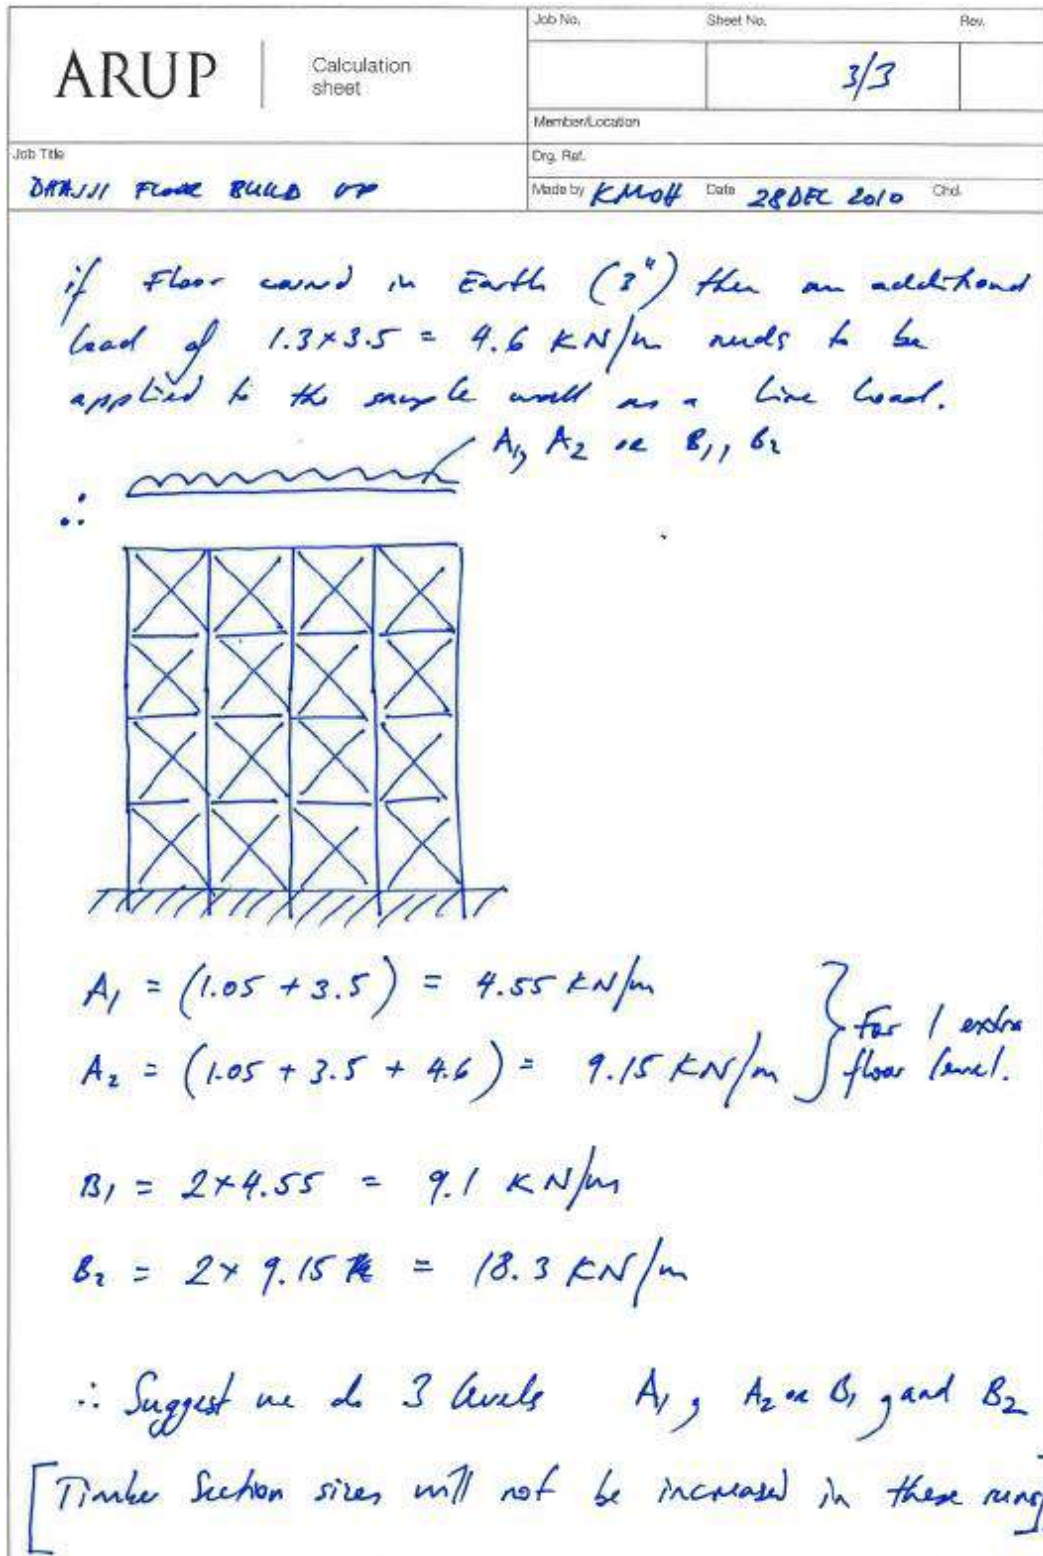 ARUP
Calculation
sheet
Job No.
Sheet No.
Rev.
3/3
Member/Location
Job Title
Drg. Ref.
DHAJJI FLOOR BUILD UP
Made by KMOH Date 28 DEC 2010 Chd.
if Floor covered in Earth (3") then an additional
load of 1.3×3.5 = 4.6 KN/m needs to be
applied to the sample wall as a line load.
A1, A2 or B1, B2
∴
A1 = (1.05 + 3.5) = 4.55 KN/m
A2 = (1.05 + 3.5 + 4.6) = 9.15 KN/m
For 1 extra
floor level.
B1 = 2×4.55 = 9.1 KN/m
B2 = 2× 9.15 = 18.3 KN/m
∴ Suggest we do 3 levels A1, A2 or B1, and B2
[Timber Section sizes will not be increased in these runs]